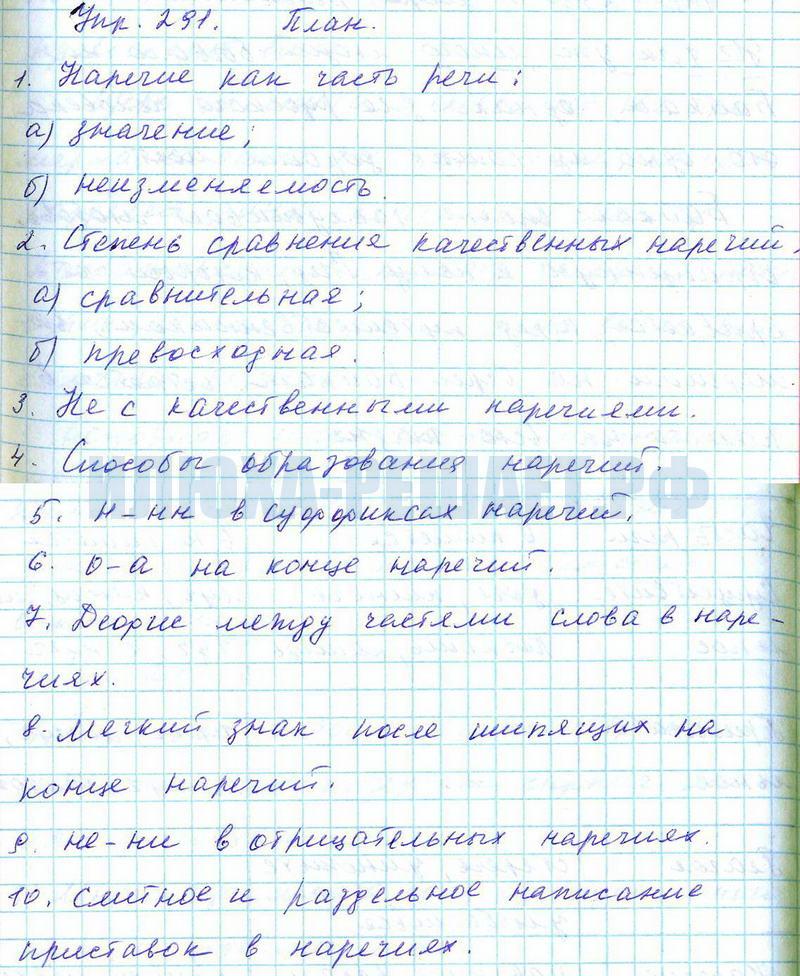 Упр. 291. План.
1. Наречие как часть речи:
а) значение;
б) неизменяемость.
2. Степень сравнения качественных наречий.
а) сравнительная;
б) превосходная.
3. Не с качественными наречиями.
4. Способы образования наречий.
5. н-нн в суффиксах наречий.
6. о-а на конце наречий.
7. Дефис между частями слова в наре-
чиях.
8. Мягкий знак после шипящих на
конце наречий.
9. не-ни в отрицательных наречиях.
10. Слитное и раздельное написание
приставок в наречиях.